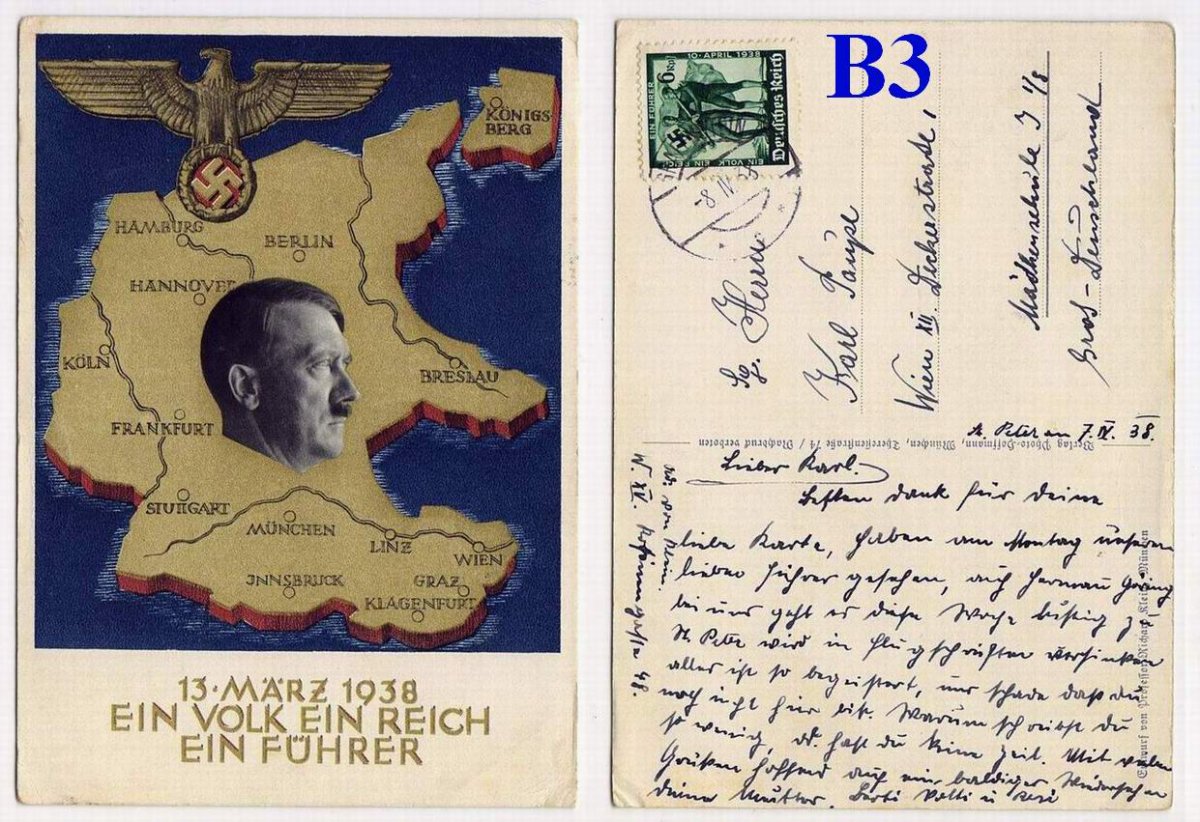 KÖNIGS-
BERG
HAMBURG
BERLIN
HANNOVER
KÖLN
BRESLAU
FRANKFURT
STUTTGART
MÜNCHEN
LINZ
WIEN
JNNSBRUCK
GRAZ
KLAGENFURT
13·MÄRZ 1938
EIN VOLK EIN REICH
EIN FÜHRER
B3
10·APRIL 1938
6 Rpf
EIN FÜHRER
EIN VOLK EIN REICH
Deutsches Reich
-8 IV 38
Herrn
Karl
Wien XII
Mädchenschule
Gros-
Verlag Photo-Hoffmann, München, Theresienstraße 74 / Nachdruck verboten
Entwurf von Professor Richard Klein, München
St. Peter am 7. IV. 38.
Lieber Karl.
Besten Dank für deine
liebe Karte, haben am Montag unseren
lieben Führer gesehen, auch Herman Göring
bei uns geht es diese Woche lustig zu
St. Peter wird in Flugschriften versinken
alles ist so begeistert, nur schade daß du
noch nicht hier bist. Warum schreibst du
so wenig, od. hast du keine Zeit. Mit vielen
Grüßen hoffend auf ein baldiges Wiedersehen
deine Mutter.